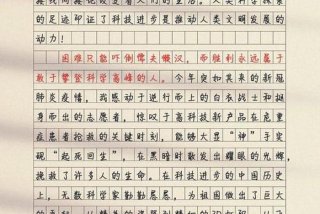 的足迹印证了科技进步是推动人类文明发展的
动力！
困难只能吓倒懦夫懒汉，而胜利永远属于
敢于攀登科学高峰的人。今年突如其来的新冠
肺炎疫情，我感动于逆行而上的白衣战士和挺
身而出的志愿者，惊叹于高科技新产品在危重
症患者抢救的关键时刻，能够大显“神”手实
现“起死回生”，在黑暗时散发出耀眼的光辉，
挽救了许多人的生命。在科技进步的中国历史
上，无数科学家勤勤恳恳，为祖国做出了巨大